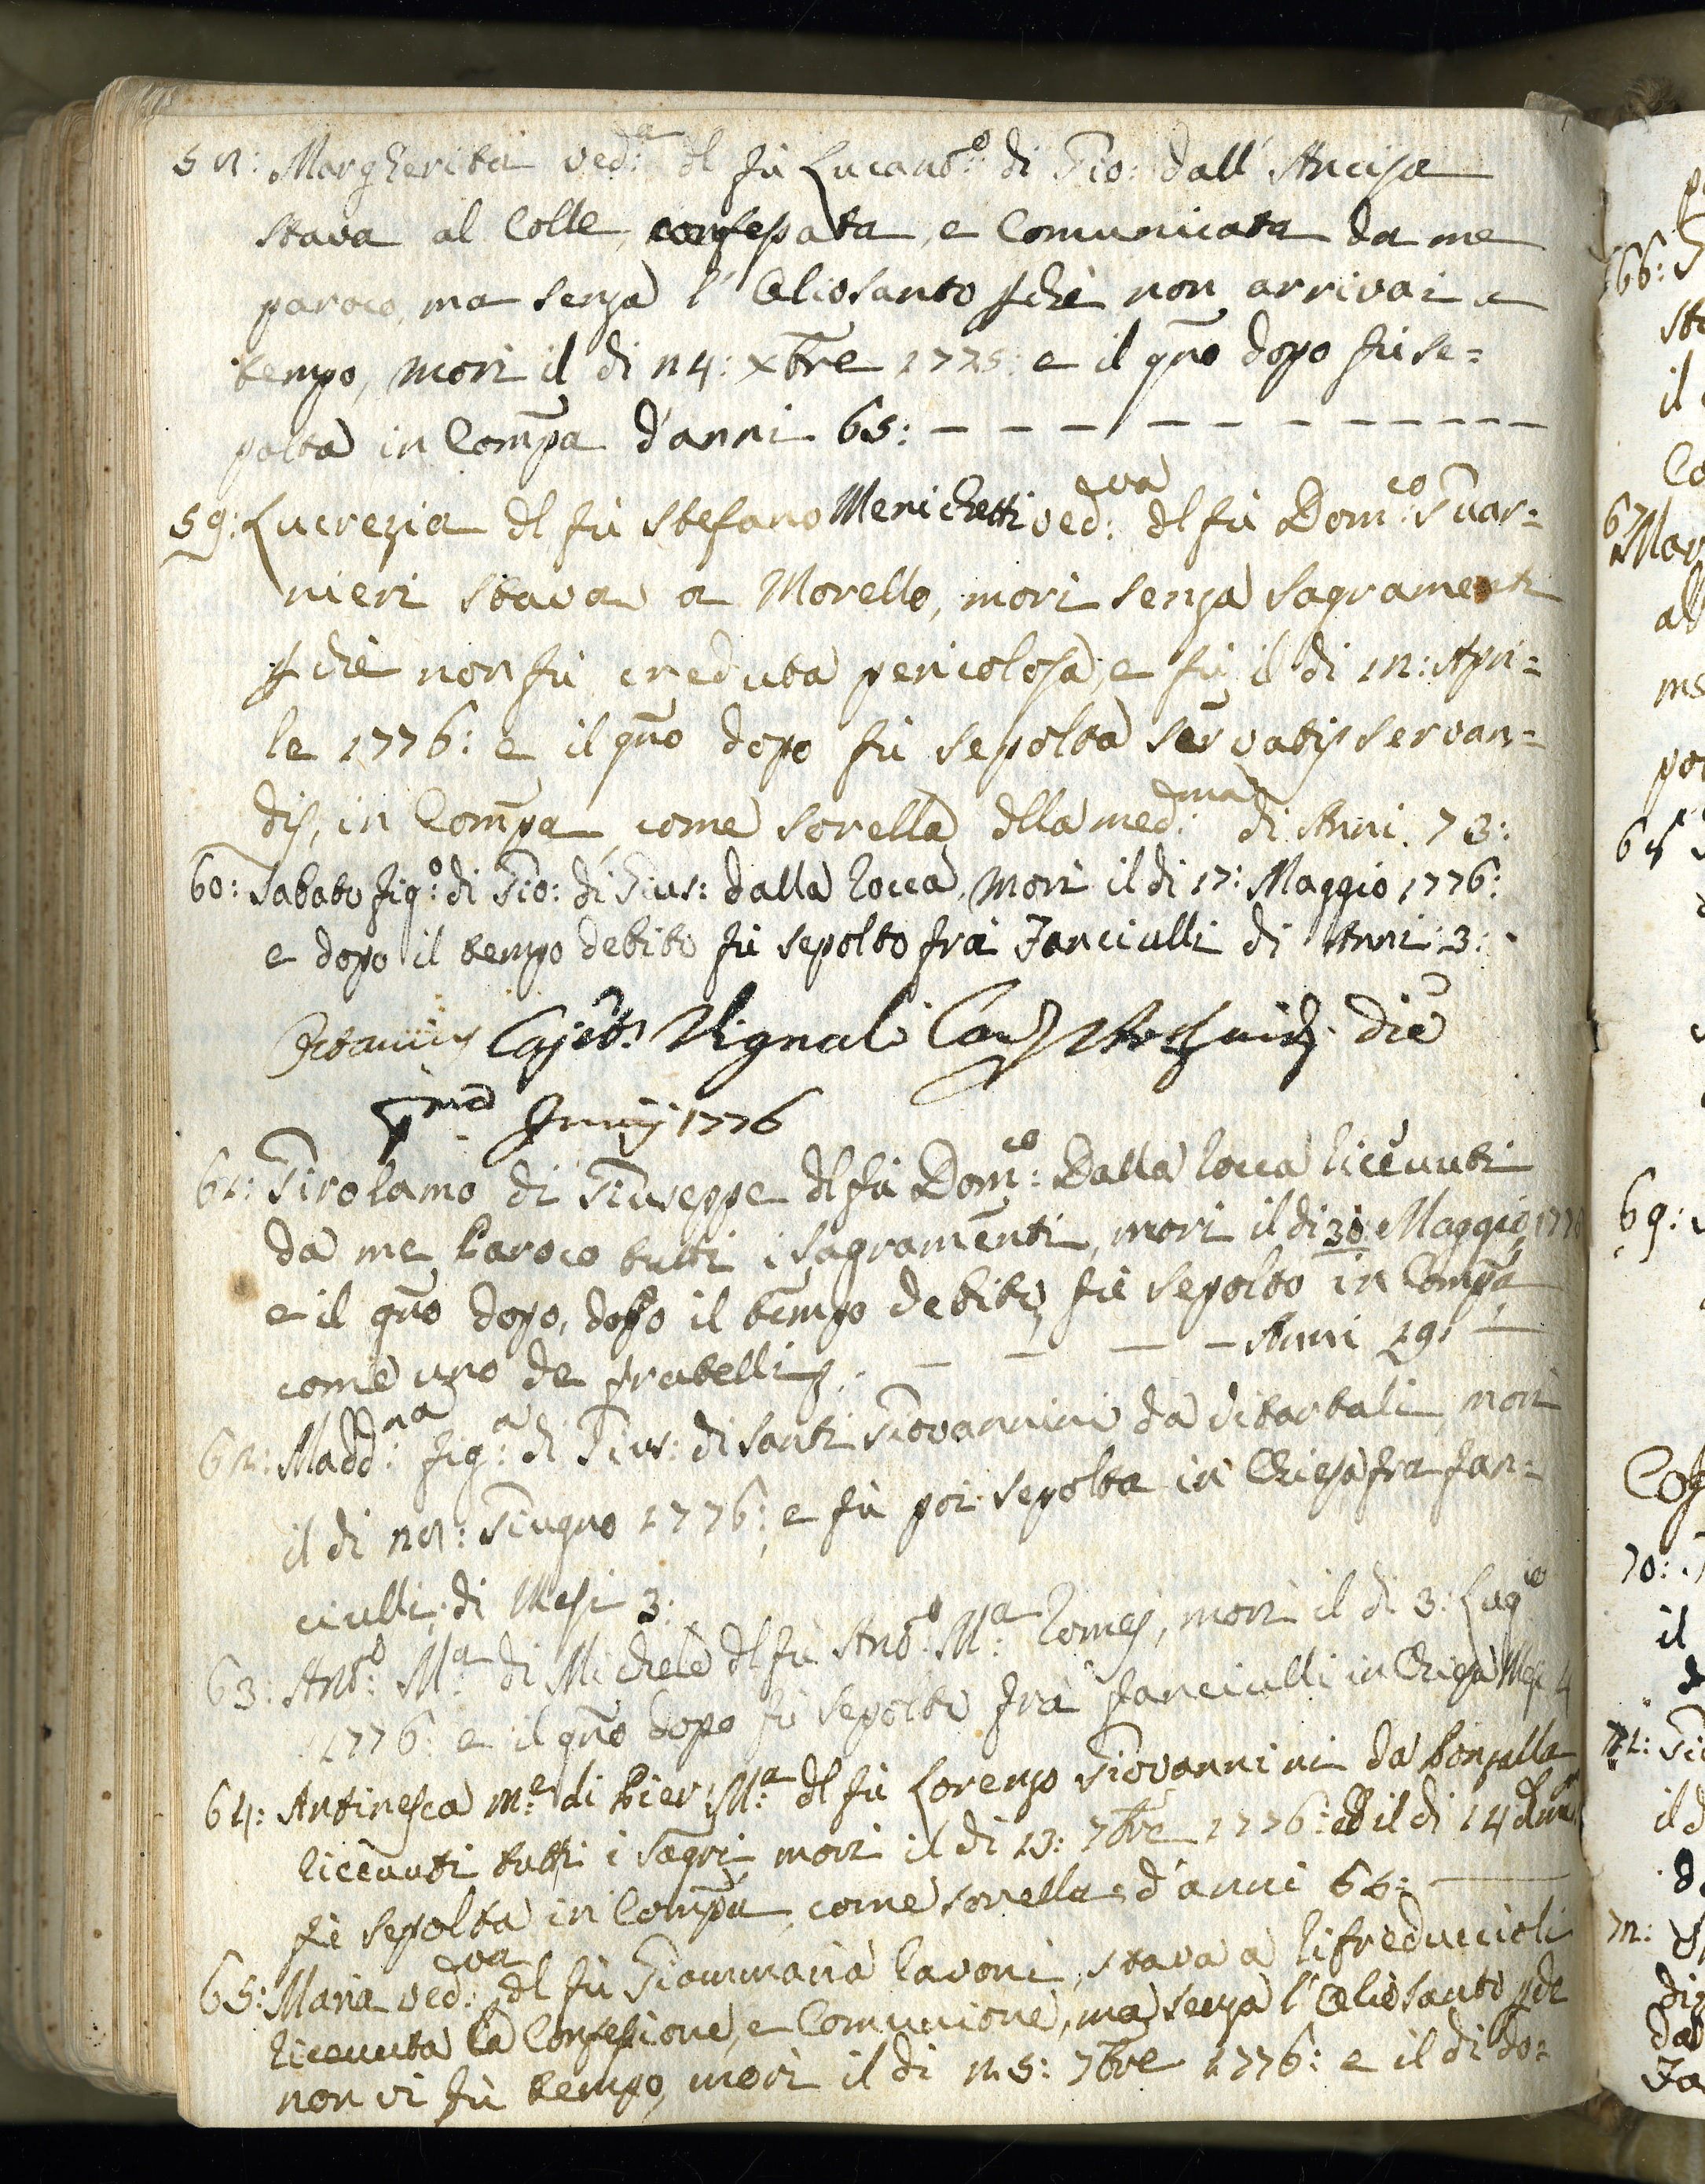 58: Margherita ved:ª dl fù Lucantº: di Gio: dall' Ancisa
stava al Colle, confessata, e Comunicata da me
paroco, ma senza l'Oliosanto pchè non arrivai a
tempo, morì il dì 24: Xbre 1775: e il gno dopo fù se=
polta in Compa d'anni 65: — — — — — — — — — —
59: Lucrezia dl fù Stefano Menichetti ved:va dl fù Dom:co Guar=
nieri stava a Morello, morì senza Sagramenti
pchè non fù creduta pericolosa, e fù il dì 12: Apri=
le 1776: e il gno dopo fù sepolta servatis servan=
dis, in Compa come sorella dlla med:ma di Anni 73:
60: Sabato fig:º di Gio: di Gius: dalla Rocca, morì il dì 17: Maggio 1776:
e dopo il tempo debito fù sepolto frà Fanciulli di Anni: 3:
Cajet: Vignali Can: die
pma Junij 1776
61: Girolamo di Giuseppe dl fù Dom:co Dalla Rocca ricevuti
da me Paroco tutti i sagramenti, morì il dì 30 Maggio 1776
e il gno dopo, dopo il tempo debito, fù sepolto in Compa
come uno de fratelli — — — — Anni 19:
62: Madd:na fig:ª di Gius: di Santi Giovannini da Vitartali, morì
il dì 28: Giugno 1776: e fù poi sepolta in Chiesa fra fan=
ciulli, di Mesi 3:
63: Antº: Mª: di Michele dl fù Antº: Mª: Romei, morì il dì 3: Lugio
1776: e il gno dopo fù sepolto frà fanciulli in Chiesa Mesi 4
64: Antinesca mº: di Pier: Mª: dl fù Lorenzo Giovannini da Ponzalla
ricevuti tutti i sagri morì il dì 13: 7bre 1776: ed il dì 14 d
fù sepolta in Compa, come sorella d'anni 66:
65: Maria ved:va dl fù Giammaria Cavoni, stava a Rifreduccioli
ricevuta la Confessione, e Comunione, ma senza l'Oliosanto pchè
non vi fù tempo, morì il dì 25: 7bre 1776: e il dì do=